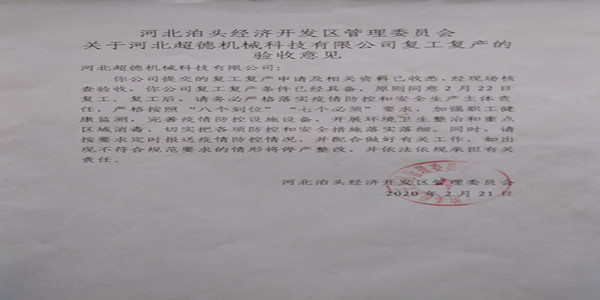 河北泊头经济开发区管理委员会
关于河北超德机械科技有限公司复工复产的
验收意见
河北超德机械科技有限公司：
你公司提交的复工复产申请及相关资料已收悉，经现场核
查验收，你公司复工复产条件已经具备，原则同意2月22日
复工。复工后，请务必严格落实疫情防控和安全生产主体责
任，严格按照“八个到位”“七个必须”要求，加强职工健
康监测，完善疫情防控设施设备，开展环境卫生整治和重点
区域消毒，切实把各项防控和安全措施落实落细。同时，请
按要求定时报送疫情防控情况，并配合做好有关工作，如出
现不符合规范要求的情形将停产整改，并依法依规承担有关
责任。
河北泊头经济开发区管理委员会
2020年2月21日